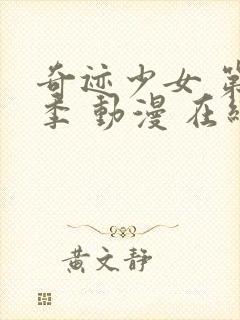 奇迹少女 第
季 動漫 在線
黄文静